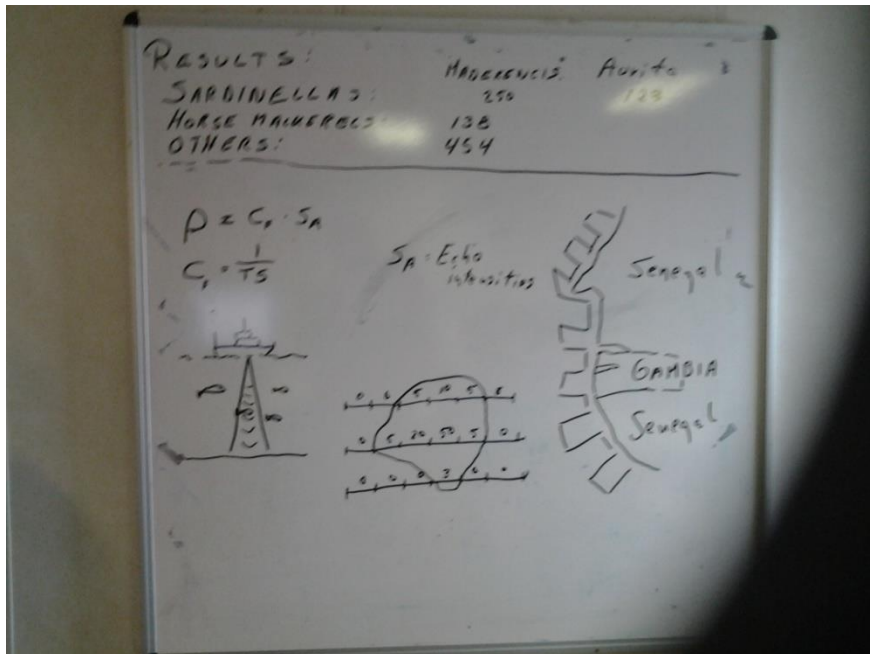 RESULTS:
MADERENCIS Aurita
SARDINELLAS: 250 123
HORSE MACKERELS: 138
OTHERS: 454
ρ = C, · SA
C, = 1/TS
SA = Echo
intensities
Senegal
GAMBIA
Senegal
0 0 5 10 5 0
0 5 20 50 5 0
0 0 0 3 0 0